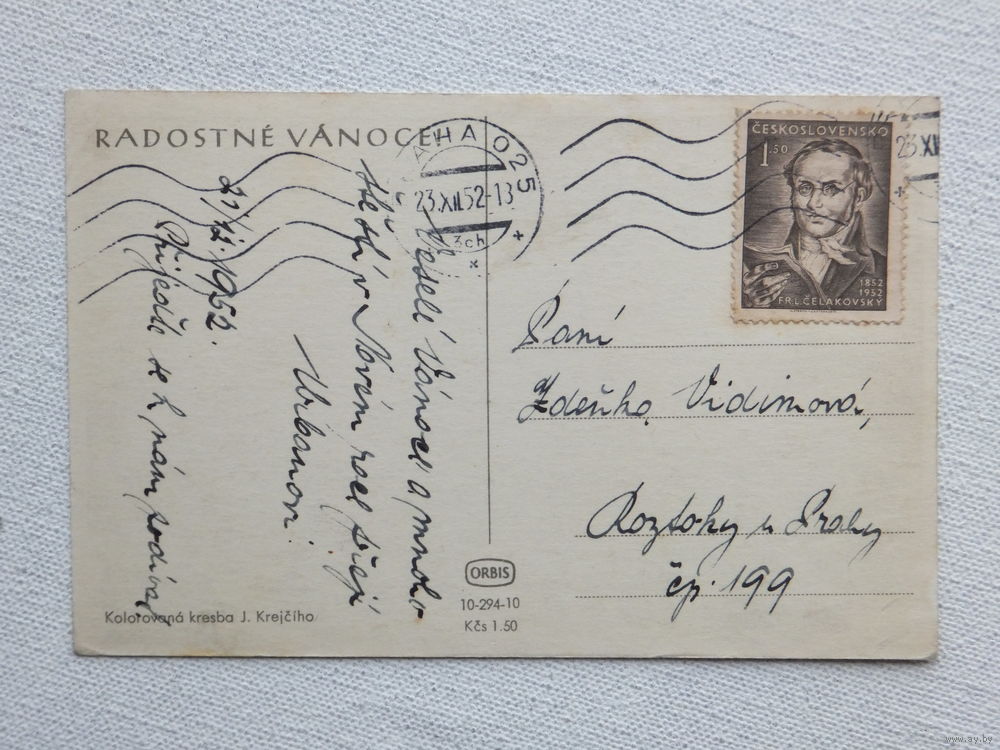 RADOSTNÉ VÁNOCE
AHA 025
23.XII.52-13
3ch
23.XI
ČESKOSLOVENSKO
1.50
1852
1952
FR.L.ČELAKOVSKÝ
Veselé Vánoce a mnoho
štěstí v Novém roce přejí
Urbanovi.
21/12.1952.
Přijeďte se k nám podívat
Paní
Zdeňka Vidimová,
Roztoky u Prahy
čp. 199
ORBIS
10-294-10
Kčs 1.50
Kolorovaná kresba J. Krejčího
www.ay.by